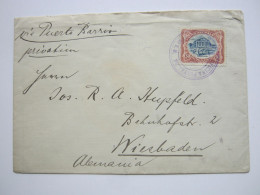 via Puerto Barrios
privatim
Herrn
Jos. R. A. Hupfeld.
Bahnhofstr. 2
Wiesbaden
Alemania